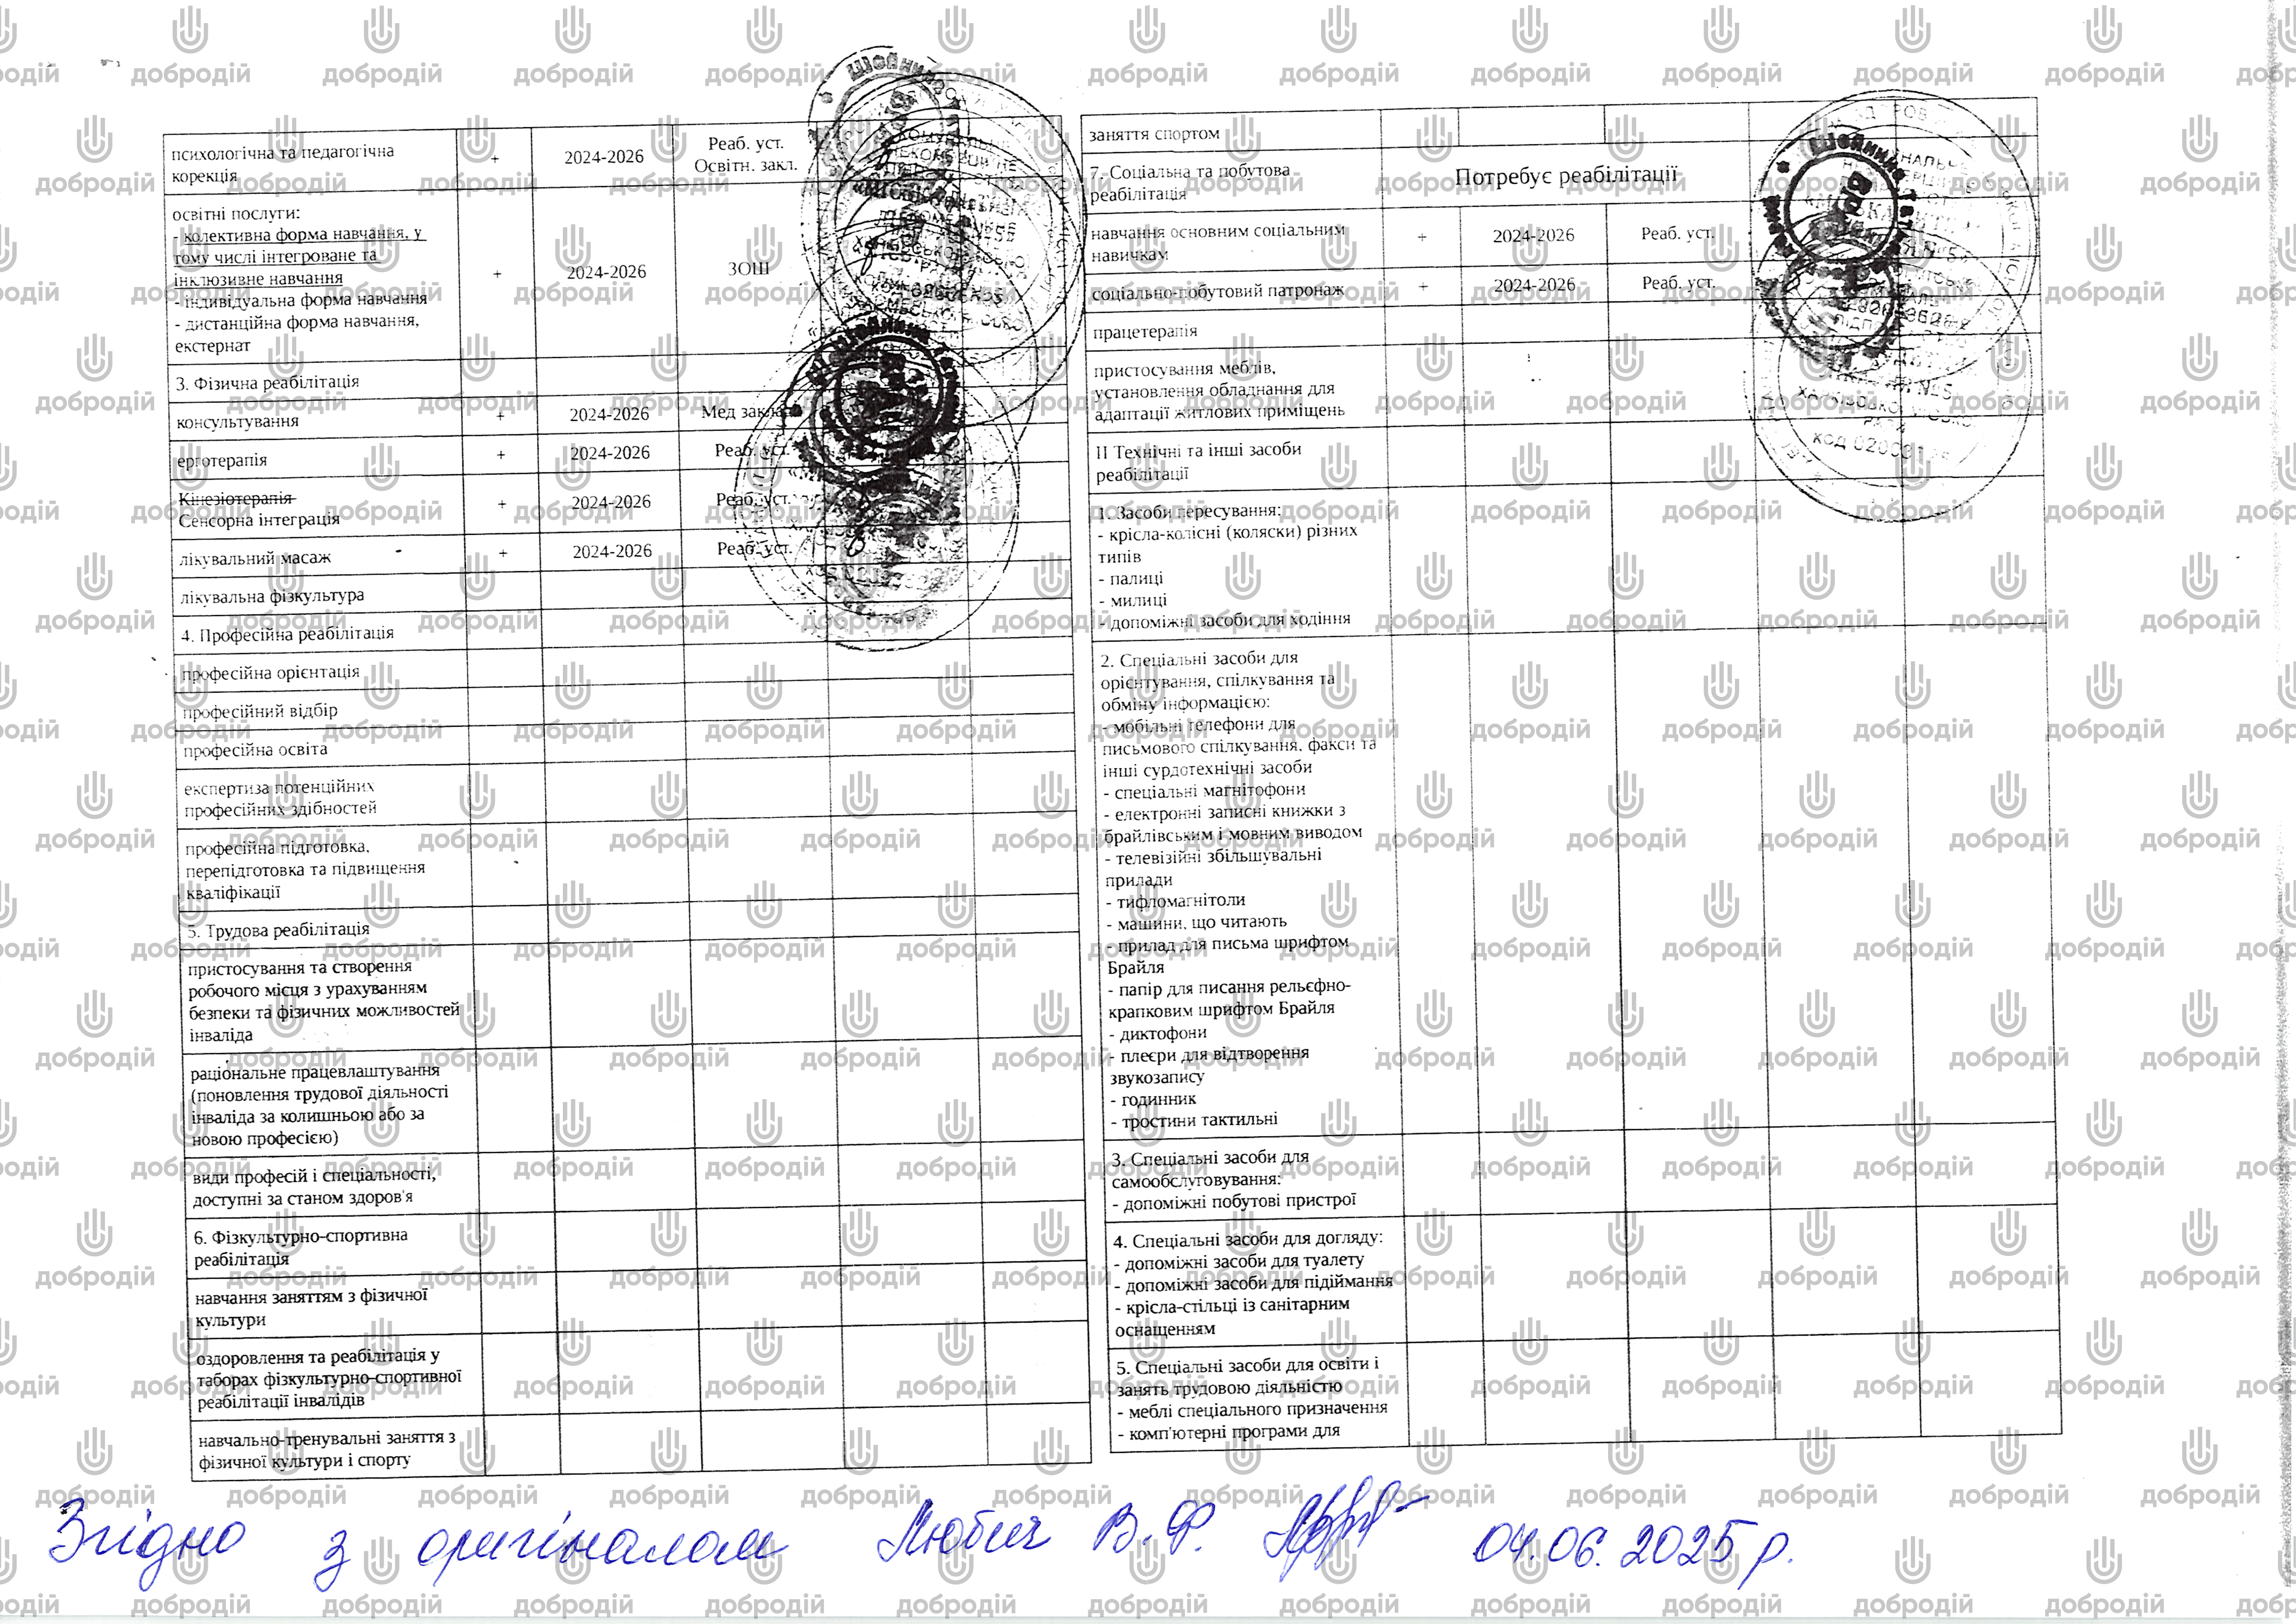 психологічна та педагогічна
корекція
+
2024-2026
Реаб. уст.
Освітн. закл.
освітні послуги:
- колективна форма навчання, у
тому числі інтегроване та
інклюзивне навчання
- індивідуальна форма навчання
- дистанційна форма навчання,
екстернат
+
2024-2026
ЗОШ
3. Фізична реабілітація
консультування
+
2024-2026
Мед заклад
ерготерапія
+
2024-2026
Реаб. уст.
Кінезіотерапія
Сенсорна інтеграція
+
2024-2026
Реаб. уст.
лікувальний масаж
+
2024-2026
Реаб. уст.
лікувальна фізкультура
4. Професійна реабілітація
професійна орієнтація
професійний відбір
професійна освіта
експертиза потенційних
професійних здібностей
професійна підготовка,
перепідготовка та підвищення
кваліфікації
5. Трудова реабілітація
пристосування та створення
робочого місця з урахуванням
безпеки та фізичних можливостей
інваліда
раціональне працевлаштування
(поновлення трудової діяльності
інваліда за колишньою або за
новою професією)
види професій і спеціальності,
доступні за станом здоров'я
6. Фізкультурно-спортивна
реабілітація
навчання заняттям з фізичної
культури
оздоровлення та реабілітація у
таборах фізкультурно-спортивної
реабілітації інвалідів
навчально-тренувальні заняття з
фізичної культури і спорту
заняття спортом
7. Соціальна та побутова
реабілітація
Потребує реабілітації
навчання основним соціальним
навичкам
+
2024-2026
Реаб. уст.
соціально-побутовий патронаж
+
2024-2026
Реаб. уст.
працетерапія
пристосування меблів,
установлення обладнання для
адаптації житлових приміщень
ІІ Технічні та інші засоби
реабілітації
1. Засоби пересування:
- крісла-колісні (коляски) різних
типів
- палиці
- милиці
- допоміжні засоби для ходіння
2. Спеціальні засоби для
орієнтування, спілкування та
обміну інформацією:
- мобільні телефони для
письмового спілкування, факси та
інші сурдотехнічні засоби
- спеціальні магнітофони
- електронні записні книжки з
брайлівським і мовним виводом
- телевізійні збільшувальні
прилади
- тифломагнітоли
- машини, що читають
- прилад для письма шрифтом
Брайля
- папір для писання рельєфно-
крапковим шрифтом Брайля
- диктофони
- плеєри для відтворення
звукозапису
- годинник
- тростини тактильні
3. Спеціальні засоби для
самообслуговування:
- допоміжні побутові пристрої
4. Спеціальні засоби для догляду:
- допоміжні засоби для туалету
- допоміжні засоби для підіймання
- крісла-стільці із санітарним
оснащенням
5. Спеціальні засоби для освіти і
занять трудовою діяльністю
- меблі спеціального призначення
- комп'ютерні програми для
Згідно з оригіналом Любич В.Ф. 04.06.2025 р.
добродій